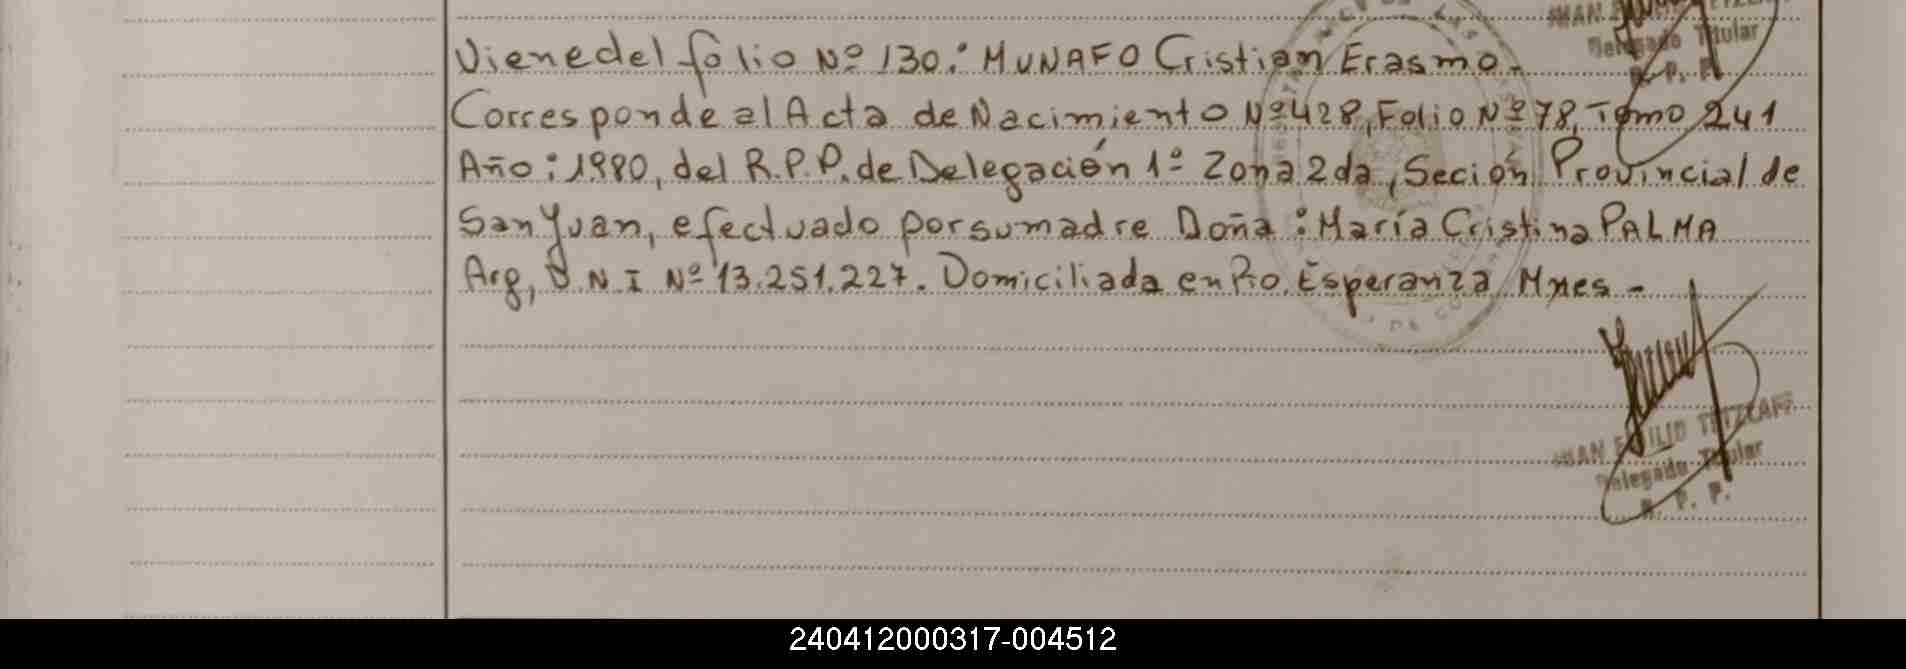 JUAN
Delegado Titular
R. P. P.
Viene del folio Nº 130: MUNAFO Cristian Erasmo.
Corresponde al Acta de Nacimiento Nº 428, Folio Nº 78, Tomo 241
Año: 1980, del R.P.P. de Delegación 1º Zona 2da, Seción Provincial de
San Juan, efectuado por su madre Doña: María Cristina PALMA
Arg, D N I Nº 13.251.227. Domiciliada en Pto. Esperanza Mnes -
JUAN EMILIO TETZLAFF
Delegado Titular
R. P. P.
240412000317-004512